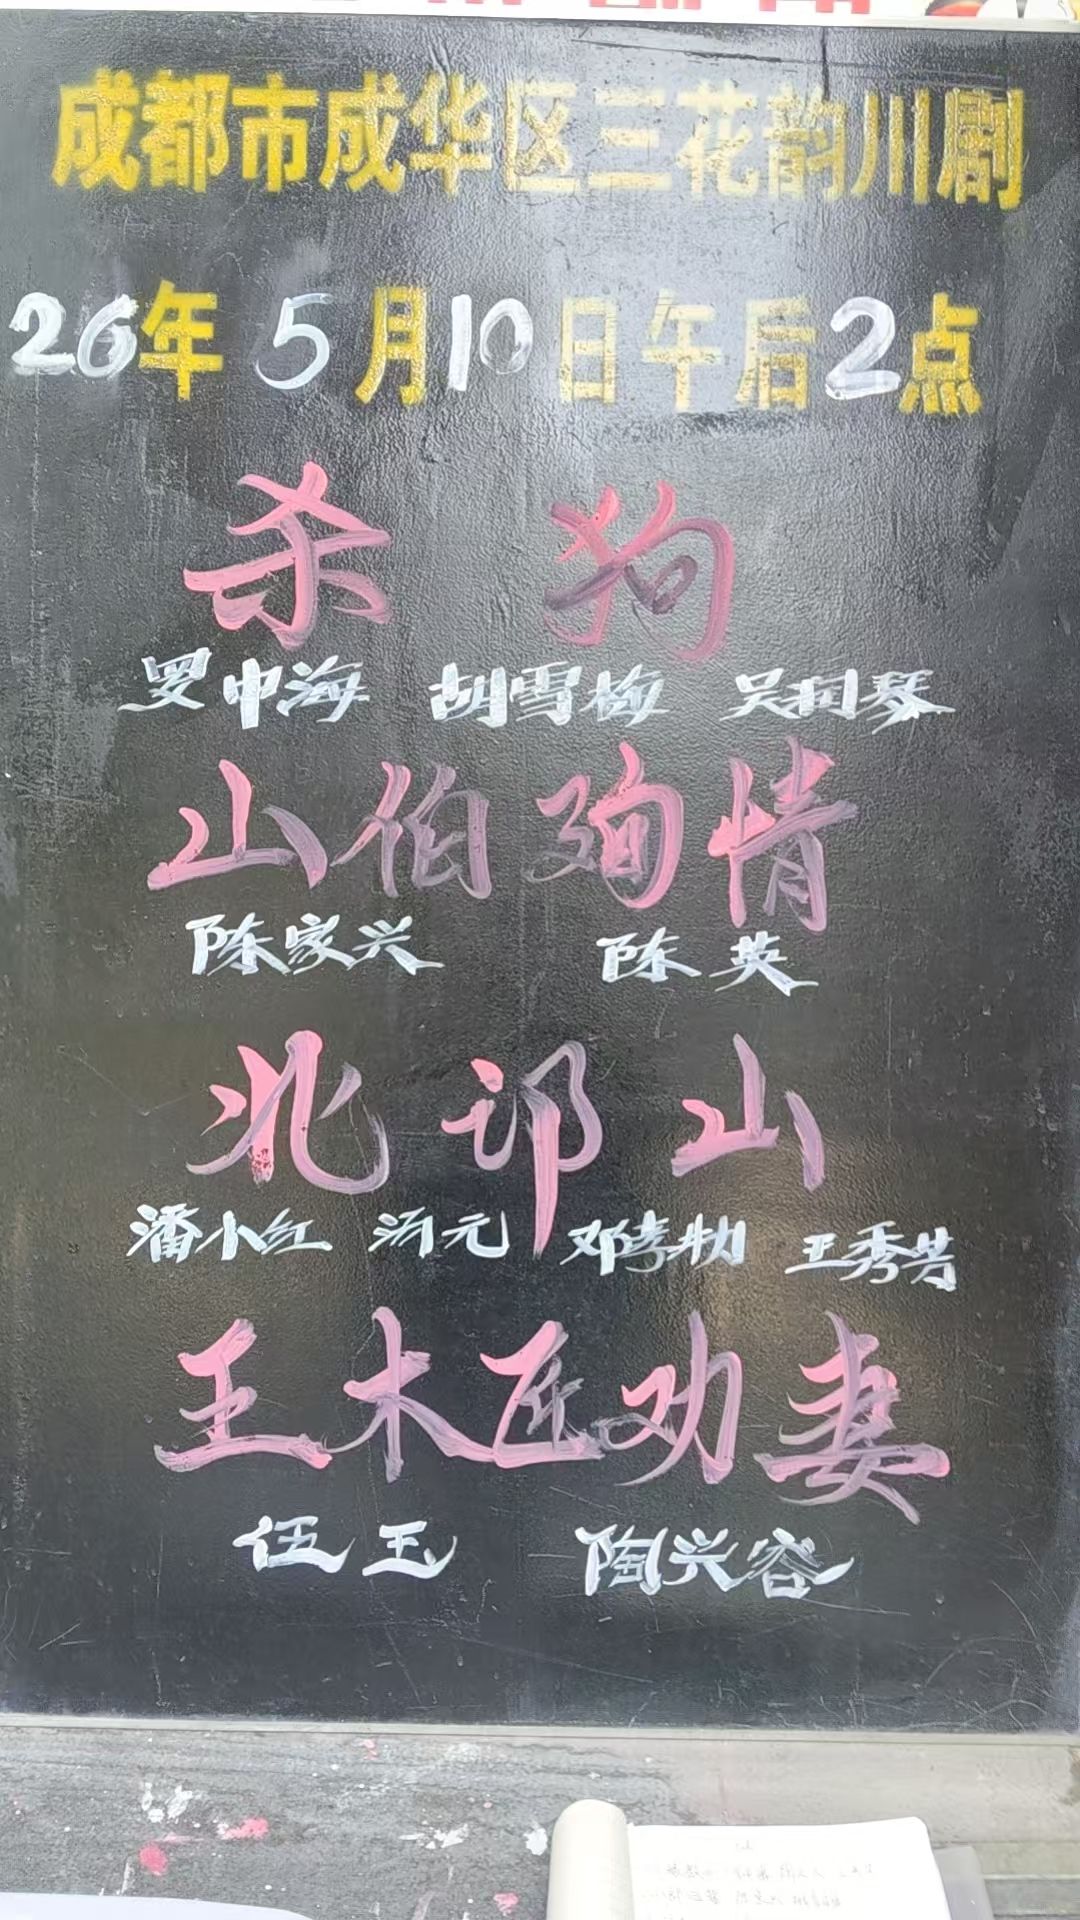 成都市成华区三花韵川剧
26年5月10日午后2点
杀狗
罗中海 胡雪梅 吴桂琴
山伯殉情
陈家兴 陈英
北邙山
潘小红 汤元 邓孝勋 王秀芳
王木匠劝妻
伍玉 陶兴容